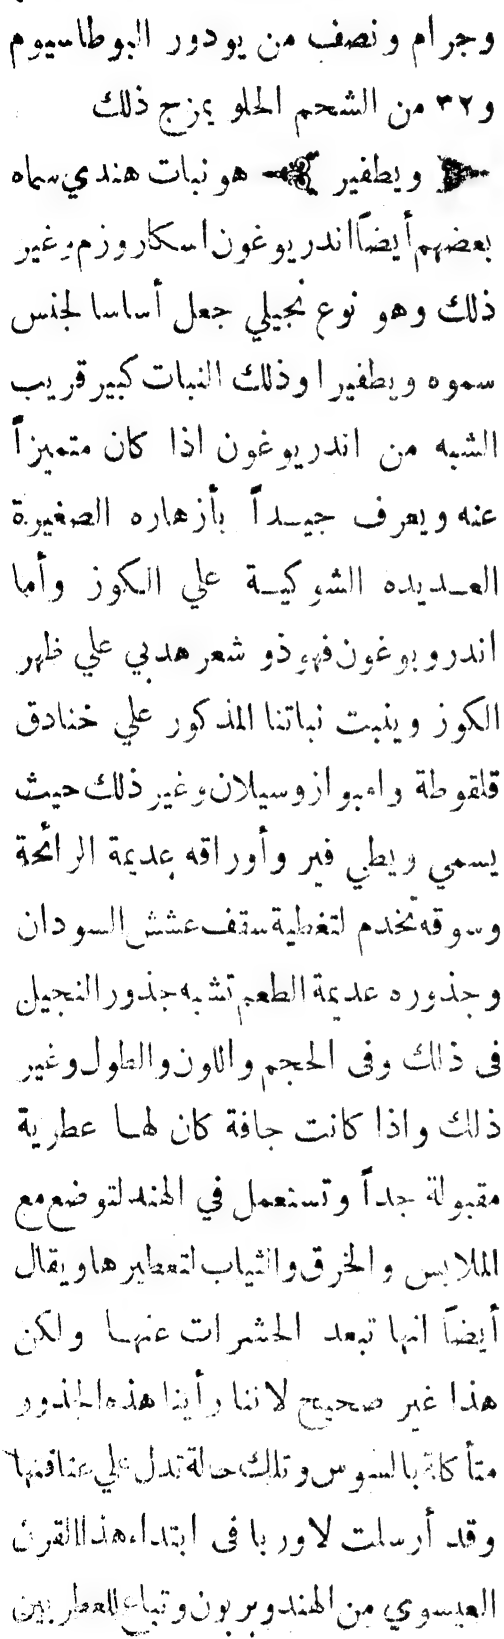 وجرام ونصف من يودور البوطاسيوم
و٣٢ من الشحم الحلو يمزج ذلك
ويطفير هو نبات هندي سماه
بعضهم أيضاً اندريوغون اسكاروزم وغير
ذلك وهو نوع نجيلي جعل أساسا لجنس
سموه ويطفيرا وذلك النبات كبير قريب
الشبه من اندريوغون اذا كان متميزاً
عنه ويعرف جيداً بأزهاره الصغيرة
العديده الشوكية علي الكوز وأما
اندروبوغون فهو ذو شعر هدبي علي ظهر
الكوز وينبت نباتنا المذكور علي خنادق
قلقوطة وامبواز وسيلان وغير ذلك حيث
يسمي ويطي فير وأوراقه عديمة الرائحة
وسوقه تخدم لتغطية سقف عشش السودان
وجذوره عديمة الطعم تشبه جذور النجيل
فى ذلك وفى الحجم واللون والطول وغير
ذلك واذا كانت جافة كان لها عطرية
مقبولة جداً وتستعمل في الهند لتوضع مع
الملابس والخرق والثياب لتعطيرها ويقال
أيضاً انها تبعد الحشرات عنها ولكن
هذا غير صحيح لاننا رأينا هذه الجذور
متأكلة بالسوس وتلك حالة تدل علي عتاقتها
وقد أرسلت لاوربا فى ابتداء هذا القرن
العيسوي من الهند وبربون وتباع للعطريين